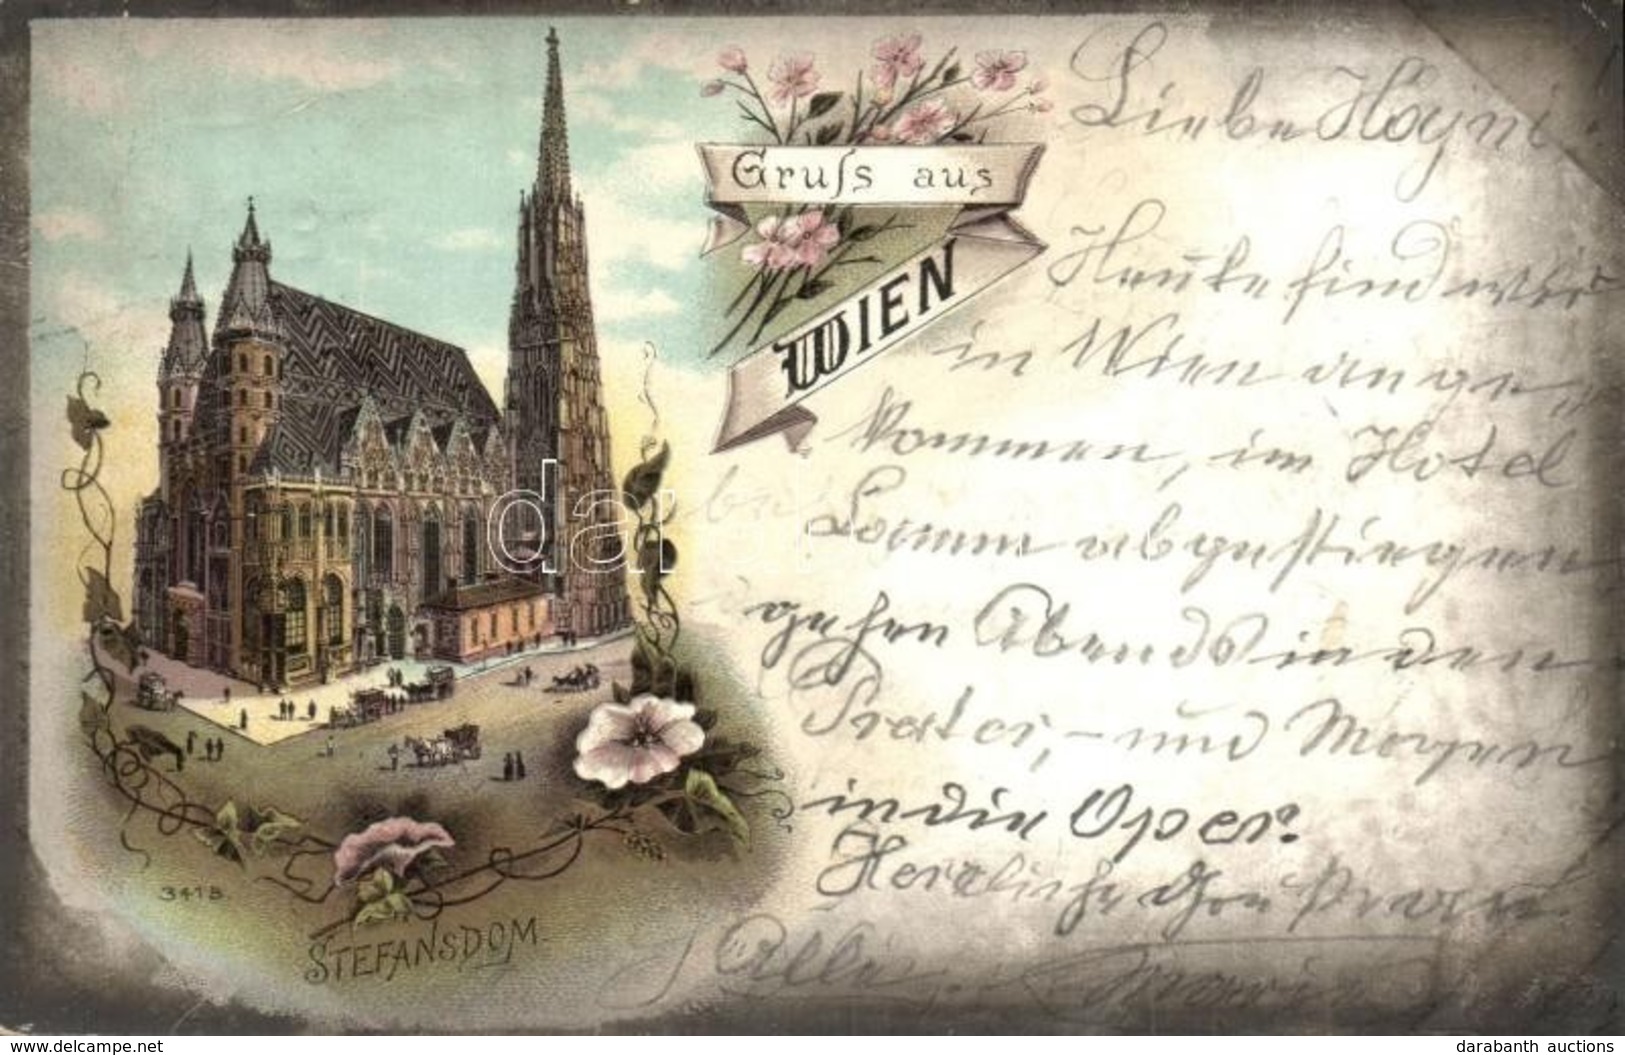 Gruſs aus
WIEN
3418
STEFANSDOM.
darabanth
Liebe
Heute sind wir
in Wien ange„
kommen, im Hotel
Lamm abgestiegen
gehen Abends in den
Prater, – und Morgen
in die Oper.
Herzliche
www.delcampe.net
darabanth auctions